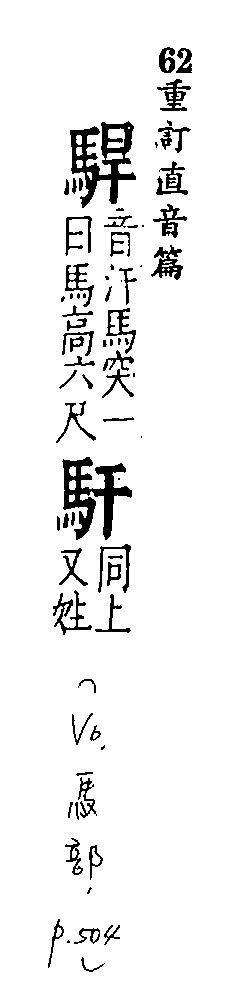 62重訂直音篇
駻
音汗馬突一
曰馬高六尺
馯
同上
又姓
(V6.
馬部,
p.504)